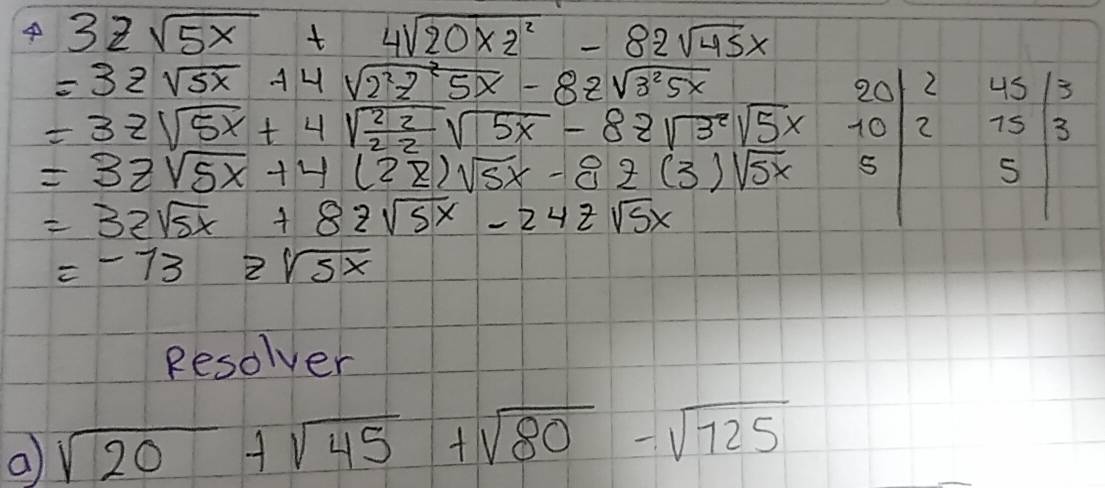 3z√5x + 4√20xz² - 8z√45x
= 3z√5x + 4√2²z²5x - 8z√3²5x
= 3z√5x + 4√2²z²√5x - 8z√3²√5x
= 3z√5x + 4(2z)√5x - 8z(3)√5x
= 3z√5x + 8z√5x - 24z√5x
= -13 z√5x
20 | 2
10 | 2
5
45 | 3
15 | 3
5
Resolver
a) √20 + √45 + √80 - √125